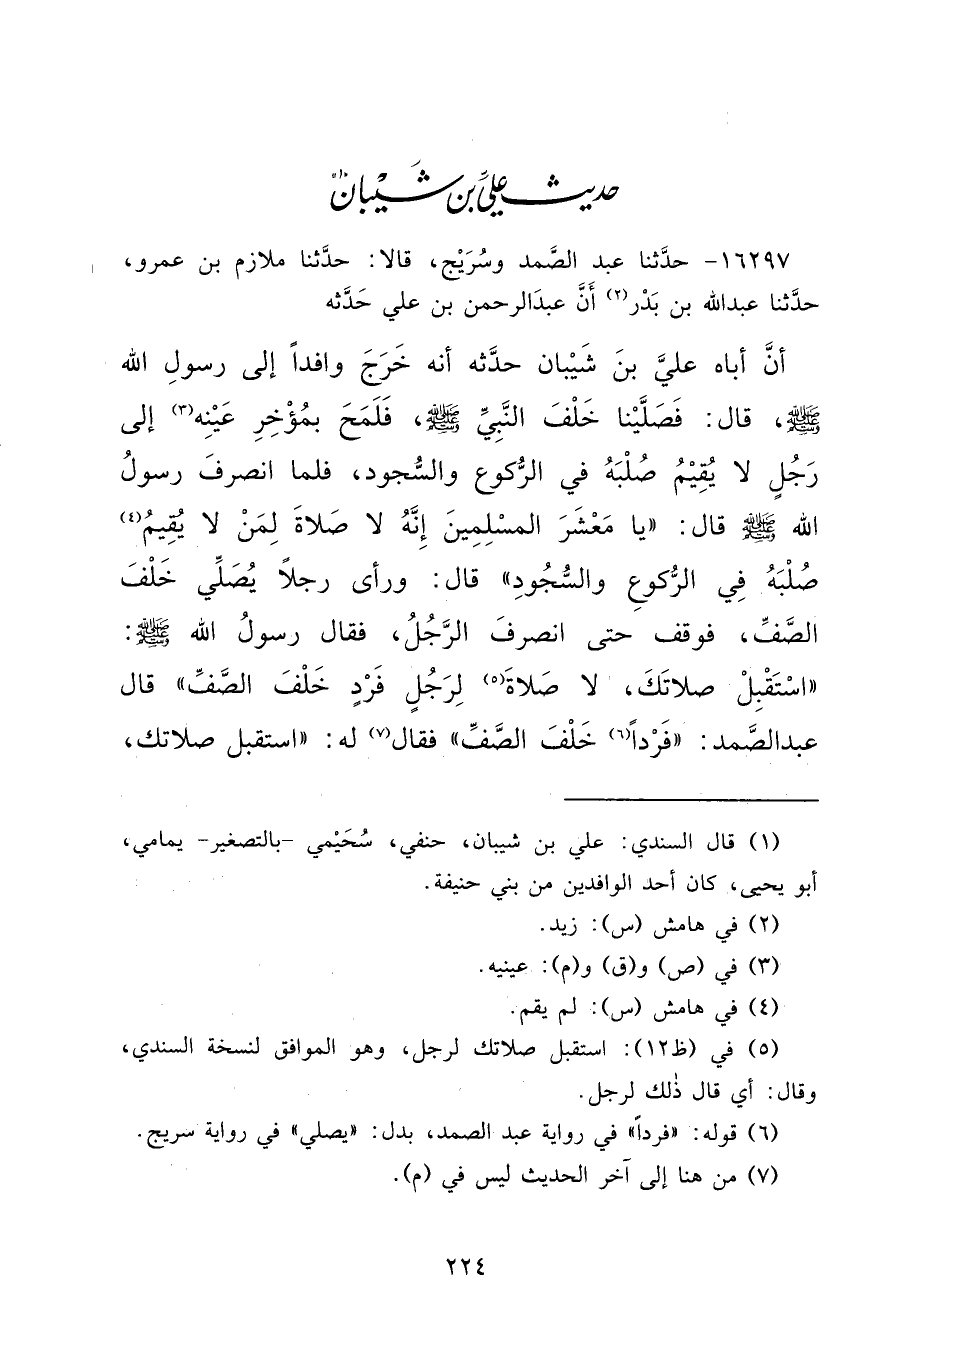 حديث علي بن شيبان(١)
١٦٢٩٧- حدَّثنا عبد الصَّمد وسُرَيْج، قالا: حدَّثنا ملازم بن عمرو،
حدَّثنا عبدالله بن بَدْر(٢) أَنَّ عبدَالرحمن بن علي حَدَّثه
أنَّ أباه عليَّ بنَ شَيْبان حدَّثه أنه خَرَجَ وافداً إلى رسولِ الله
ﷺ، قال: فَصَلَّيْنا خَلْفَ النَّبِيِّ ﷺ، فَلَمَحَ بمُؤْخِرِ عَيْنِه(٣) إلى
رَجُلٍ لا يُقِيْمُ صُلْبَهُ في الرُّكوع والسُّجود، فلما انصرفَ رسولُ
الله ﷺ قال: «يا مَعْشَرَ المسْلِمِينَ إِنَّهُ لا صَلاةَ لِمَنْ لا يُقِيمُ(٤)
صُلْبَهُ فِي الرُّكوعِ والسُّجُودِ» قال: ورأى رجلاً يُصَلِّي خَلْفَ
الصَّفِّ، فوقف حتى انصرفَ الرَّجُلُ، فقال رسولُ الله ﷺ:
«اسْتَقْبِلْ صلاتَكَ، لا صَلاةَ(٥) لِرَجُلٍ فَرْدٍ خَلْفَ الصَّفِّ» قال
عبدالصَّمد: «فَرْداً(٦) خَلْفَ الصَّفِّ» فقال(٧) له: «استقبل صلاتك،
(١) قال السندي: علي بن شيبان، حنفي، سُحَيْمي -بالتصغير- يمامي،
أبو يحيى، كان أحد الوافدين من بني حنيفة.
(٢) في هامش (س): زيد.
(٣) في (ص) و(ق) و(م): عينيه.
(٤) في هامش (س): لم يقم.
(٥) في (ظ١٢): استقبل صلاتك لرجل، وهو الموافق لنسخة السندي،
وقال: أي قال ذٰلك لرجل.
(٦) قوله: «فرداً» في رواية عبد الصمد، بدل: «يصلي» في رواية سريج.
(٧) من هنا إلى آخر الحديث ليس في (م).
٢٢٤